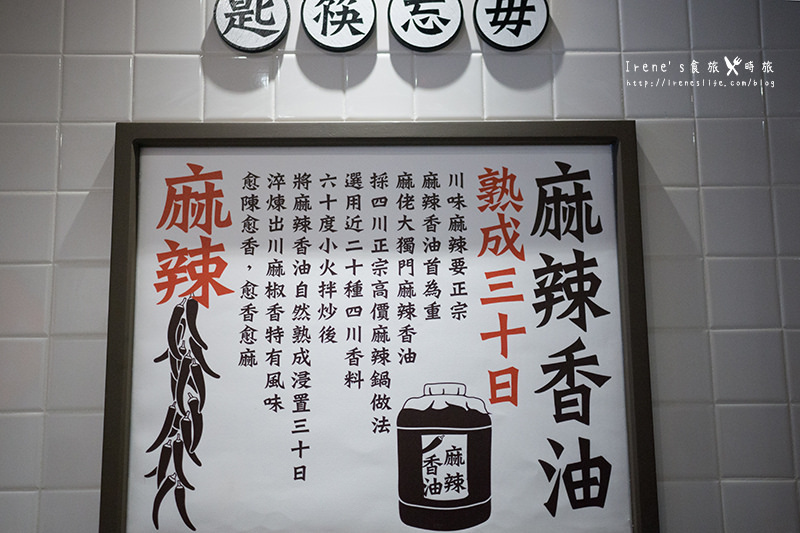 匙筷忘毋
Irene's食旅時旅
http://ireneslife.com/blog
麻辣香油
熟成三十日
川味麻辣要正宗
麻辣香油首為重
麻佬大獨門麻辣香油
採四川正宗高價麻辣鍋做法
選用近二十種四川香料
六十度小火拌炒後
將麻辣香油自然熟成浸置三十日
淬煉出川麻椒香特有風味
愈陳愈香，愈香愈麻
麻辣
麻辣
香油